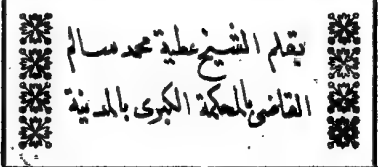 بقلم الشيخ عطية محمد سالم
القاضى بالمحكمة الكبرى بالمدينة